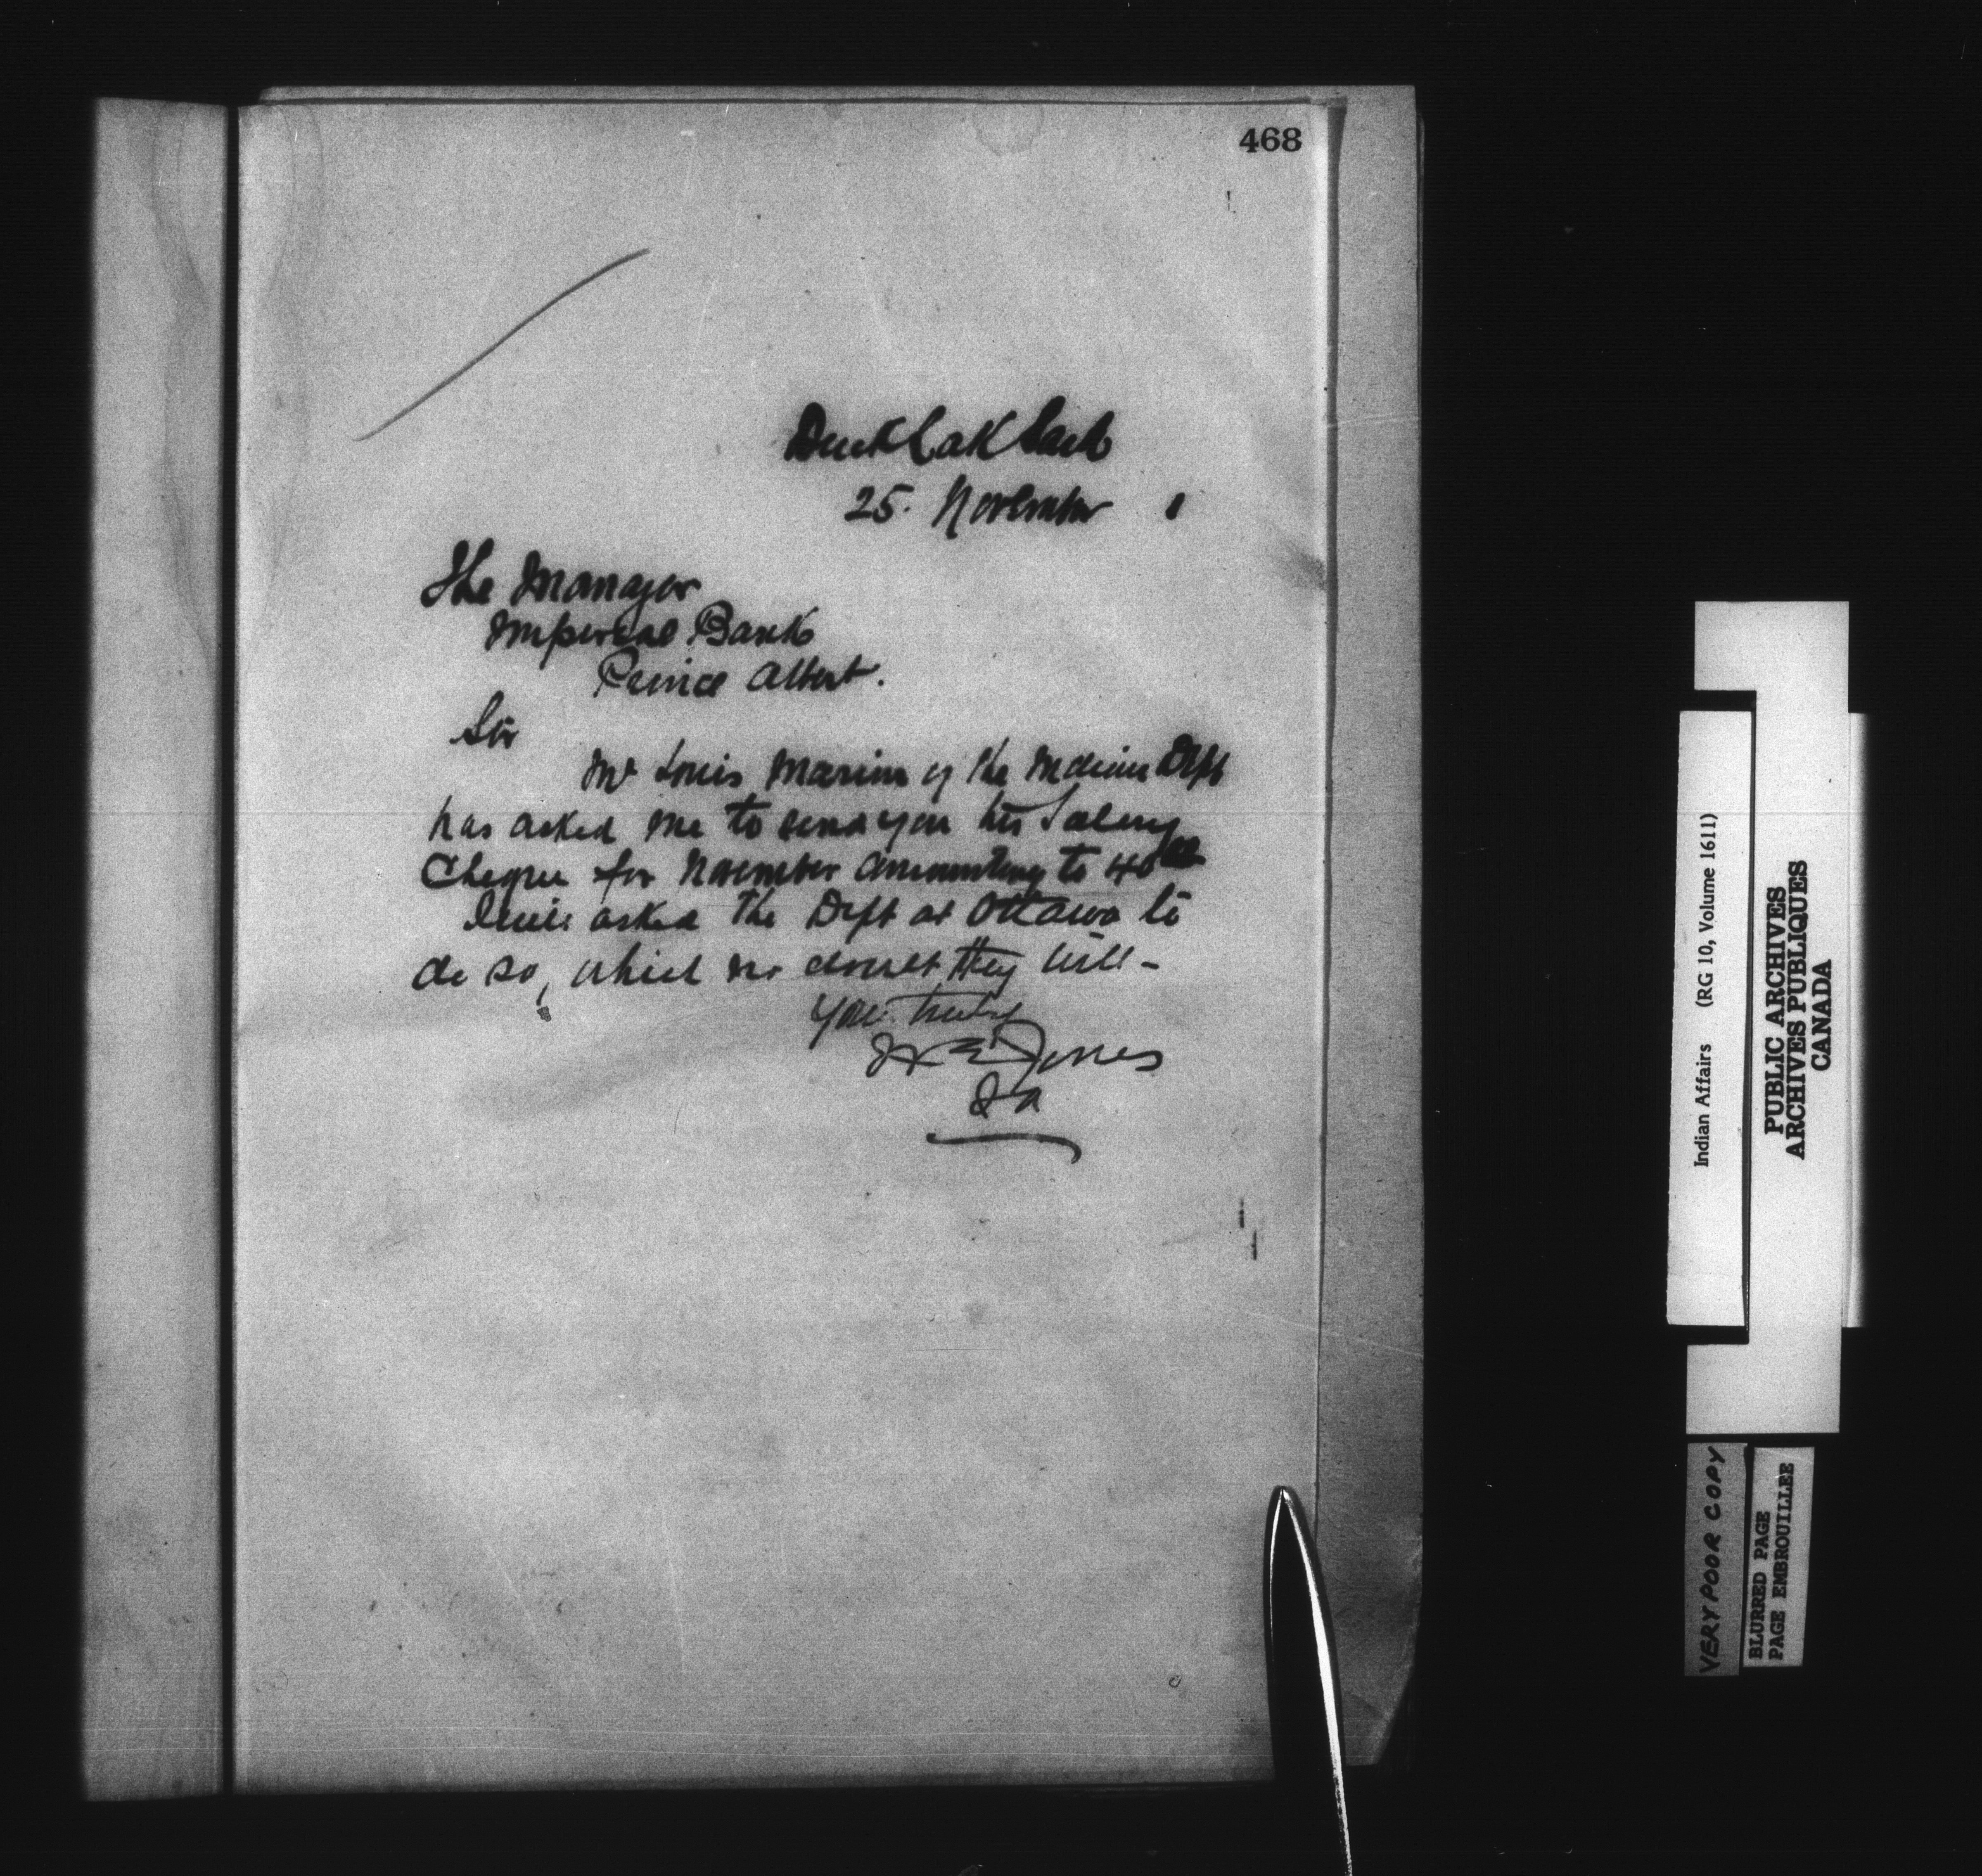 468
Duck Lake Sask
25. November 1
The Manager
Imperial Bank
Prince Albert.
Sir
Mr Louis Marion of the Indian Dept
has asked me to send you his Salary
Cheque for November amounting to 40 00
I asked the Dept at Ottawa to
do so, which no doubt they will -
Yours truly
Jones
IA
Indian Affairs (RG 10, Volume 1611)
PUBLIC ARCHIVES
ARCHIVES PUBLIQUES
CANADA
VERY POOR COPY
BLURRED PAGE
PAGE EMBROUILLEE